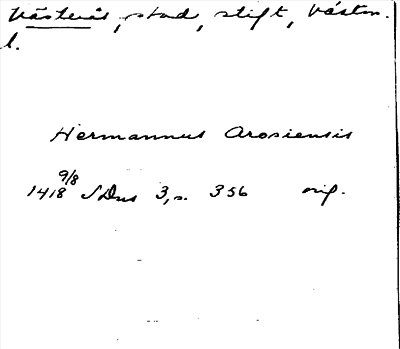 Västerås, stad, stift, Västm.
l.
Hermannus Arosiensis
9/8
1418 SDns 3, s. 356 orig.